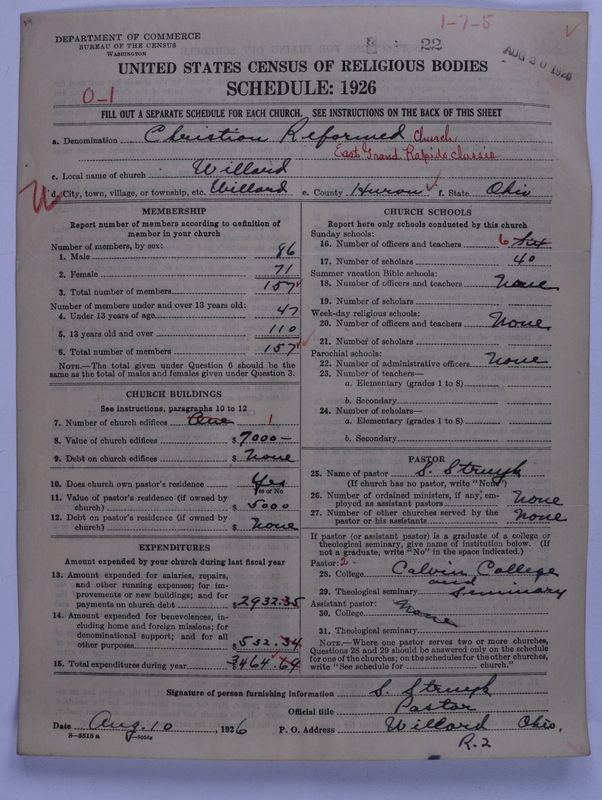 DEPARTMENT OF COMMERCE
BUREAU OF THE CENSUS
WASHINGTON
1-7-5
22
AUG 20 1926
UNITED STATES CENSUS OF RELIGIOUS BODIES
SCHEDULE: 1926
0-1
FILL OUT A SEPARATE SCHEDULE FOR EACH CHURCH. SEE INSTRUCTIONS ON THE BACK OF THIS SHEET
a. Denomination Christian Reformed Church
East Grand Rapids classis
c. Local name of church Willard
d. City, town, village, or township, etc. Willard e. County Huron f. State Ohio
MEMBERSHIP
Report number of members according to definition of
member in your church
Number of members, by sex:
1. Male 86
2. Female 71
3. Total number of members 157
Number of members under and over 13 years old:
4. Under 13 years of age 47
5. 13 years old and over 110
6. Total number of members 157
NOTE.—The total given under Question 6 should be the
same as the total of males and females given under Question 3.
CHURCH BUILDINGS
See instructions, paragraphs 10 to 12
7. Number of church edifices One 1
8. Value of church edifices $7000—
9. Debt on church edifices $None
10. Does church own pastor's residence Yes
Yes or No
11. Value of pastor's residence (if owned by
church) $5000
12. Debt on pastor's residence (if owned by
church) $None
EXPENDITURES
Amount expended by your church during last fiscal year
13. Amount expended for salaries, repairs,
and other running expenses; for im-
provements or new buildings; and for
payments on church debt $2932.35
14. Amount expended for benevolences, in-
cluding home and foreign missions; for
denominational support; and for all
other purposes $532.34
15. Total expenditures during year $3464.69
CHURCH SCHOOLS
Report here only schools conducted by this church
Sunday schools:
16. Number of officers and teachers 6 Six
17. Number of scholars 40
Summer vacation Bible schools:
18. Number of officers and teachers None
19. Number of scholars
Week-day religious schools:
20. Number of officers and teachers None
21. Number of scholars
Parochial schools:
22. Number of administrative officers None
23. Number of teachers—
a. Elementary (grades 1 to 8)
b. Secondary
24. Number of scholars—
a. Elementary (grades 1 to 8)
b. Secondary
PASTOR
25. Name of pastor S. Struyk
(If church has no pastor, write "None")
26. Number of ordained ministers, if any, em-
ployed as assistant pastors None
27. Number of other churches served by the
pastor or his assistants None
If pastor (or assistant pastor) is a graduate of a college or
theological seminary, give name of institution below. (If
not a graduate, write "No" in the space indicated.)
Pastor: 2
28. College Calvin College
and
29. Theological seminary Seminary
Assistant pastor:
30. College None
31. Theological seminary
NOTE.—Where one pastor serves two or more churches,
Questions 28 and 29 should be answered only on the schedule
for one of the churches; on the schedules for the other churches,
write "See schedule for church."
Signature of person furnishing information S. Struyk
Official title Pastor
Date Aug. 10, 1926 P. O. Address Willard Ohio.
R.2